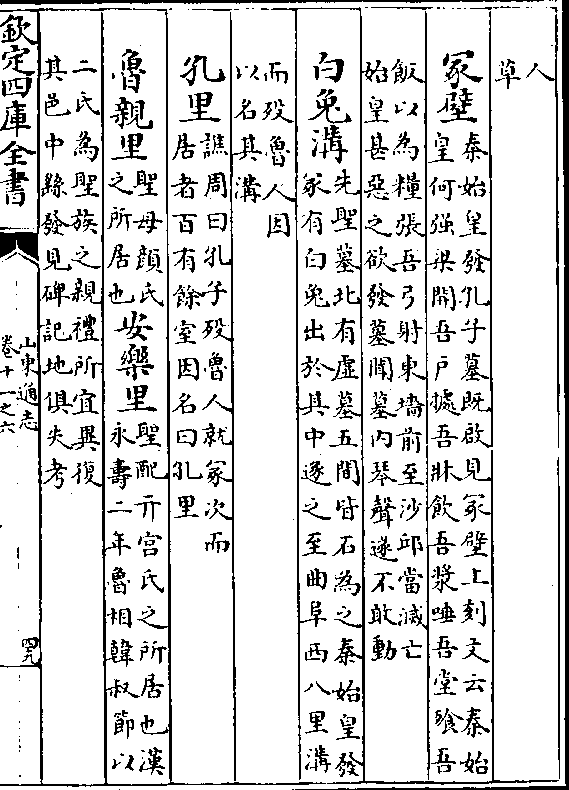 人
草
冢壁
秦始皇發孔子墓既啟見冢壁上刻文云秦始
皇何强梁開吾户據吾牀飲吾漿唾吾堂飧吾
飯以為糧張吾弓射東墻前至沙邱當滅亡
始皇甚惡之欲發墓聞墓内琴聲遂不敢動
白兔溝
先聖墓北有虚墓五間皆石為之秦始皇發
冢有白兔出於其中逐之至曲阜西八里溝
而殁魯人因
以名其溝
孔里
譙周曰孔子殁魯人就冢次而
居者百有餘室因名曰孔里
魯親里
聖母顔氏
之所居也
安樂里
聖配亓官氏之所居也漢
永壽二年魯相韓叔節以
二氏為聖族之親禮所宜異復
其邑中繇發見碑記地俱失考
欽定四庫全書
山東通志
卷十一之六
四九